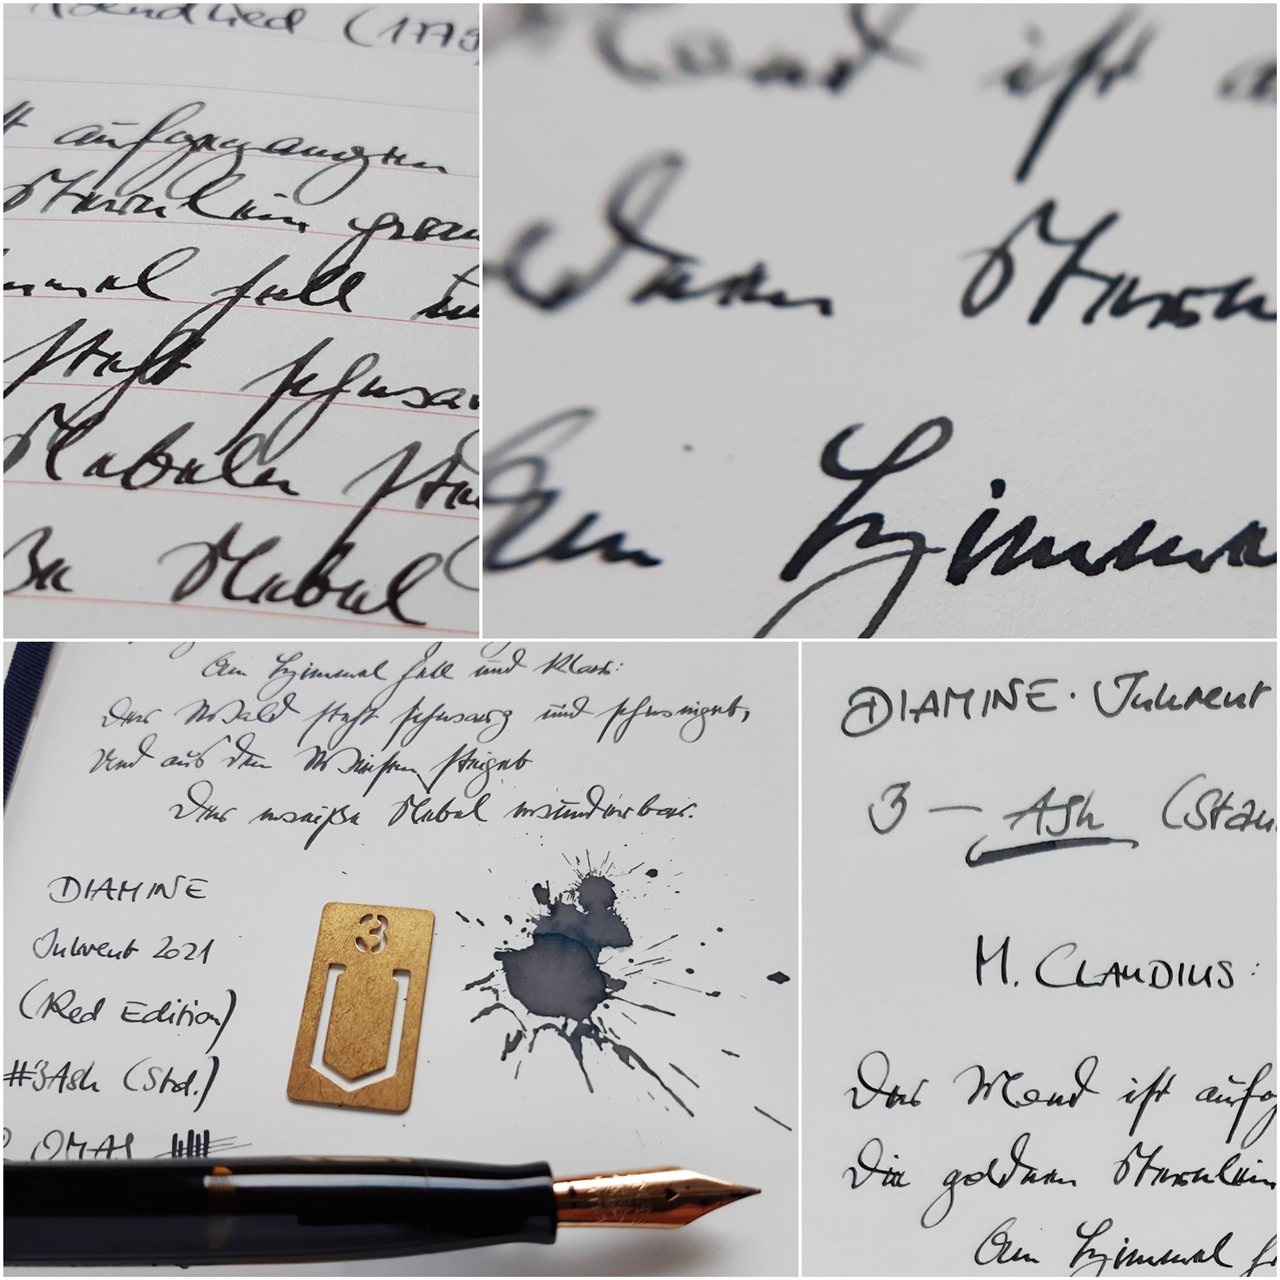 Abendlied (1779
t aufgegangen
Sternlein pran
mmel hell un
steht schwar
Nebeln
ße Nebel
Mond ist a
ldnen Sternl
Am Himmel
Am Himmel hell und klar:
Der Wald steht schwarz und schweiget,
Und aus den Wiesen steiget
Der weiße Nebel wunderbar.
DIAMINE
Inkvent 2021
(Red Edition)
#3 Ash (Std.)
OMAS
3
DIAMINE · Inkvent
3 — Ash (Stan
M. CLAUDIUS:
Der Mond ist aufg
Die goldnen Sternlein
Am Himmel h